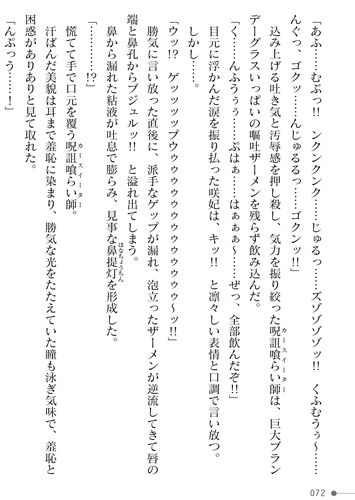 「あふ……むぶっ!!　ンクンクンク……じゅるっ……ズゾゾゾゾッ!!　くふむぅぅ～……
んぐっ、ゴクッ……んじゅるるっ……ゴクンッ!!」
　込み上げる吐き気と汚辱感を押し殺し、気力を振り絞った呪詛喰らい師は、巨大ブラン
カースイーター
デーグラスいっぱいの嘔吐ザーメンを残らず飲み込んだ。
「く……んふうぅぅ……ぷはぁ……はぁぁぁ～……ぜっ、全部飲んだぞ!!」
　目元に浮かんだ涙を振り払った咲妃は、キッ!!　と凛々しい表情と口調で言い放つ。
　しかし……。
「ウッ!?　ゲッッッップウゥゥゥゥゥゥゥゥゥゥゥゥゥ～ッ!!」
　勝気に言い放った直後に、派手なゲップが漏れ、泡立ったザーメンが逆流してきて唇の
端と鼻孔からブジュルッ!!　と溢れ出てしまう。
　鼻から漏れた粘液が吐息で膨らみ、見事な鼻提灯を形成した。
はなちょうちん
「…………!?」
　慌てて手で口元を覆う呪詛喰らい師。
カースイーター
　汗ばんだ美貌は耳まで羞恥に染まり、勝気な光をたたえていた瞳も泳ぎ気味で、羞恥と
困惑がありありと見て取れた。
「んぷぅう……！」
072